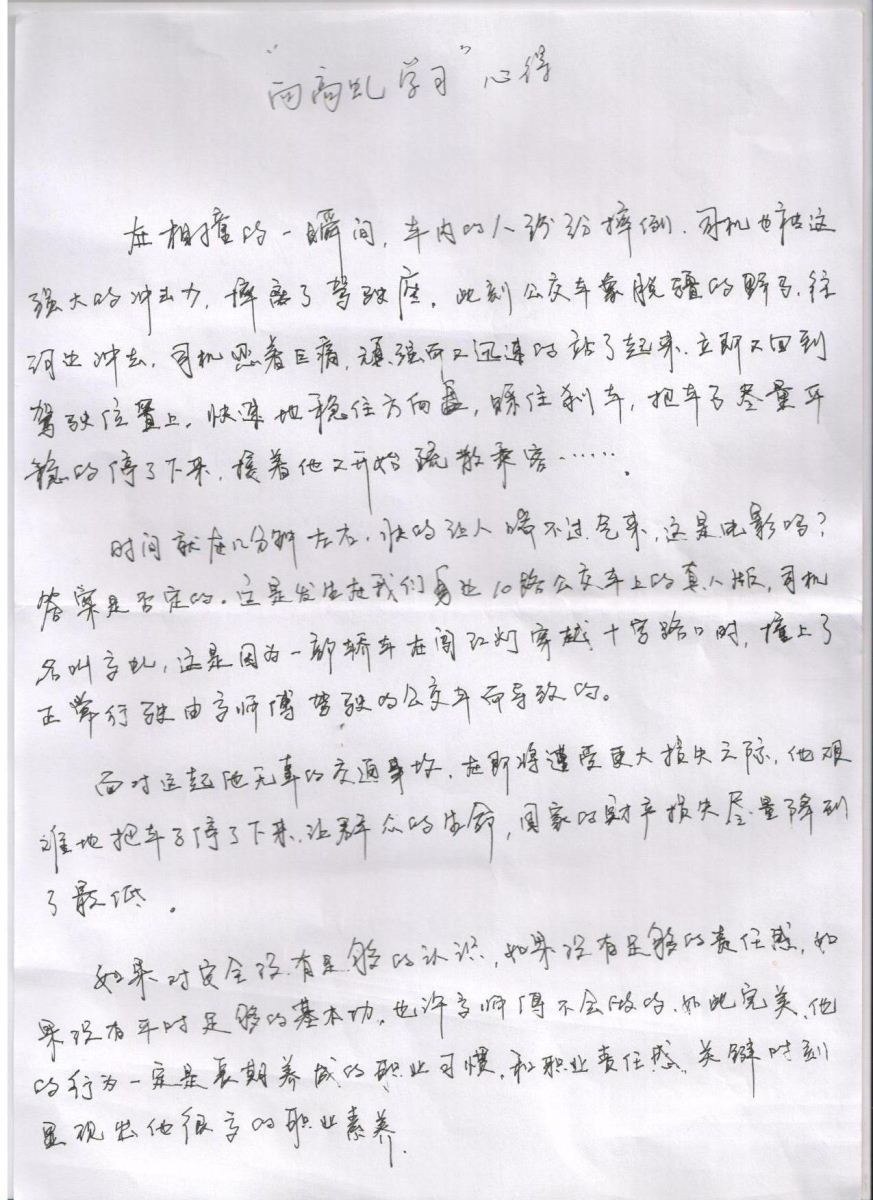 “向高虬学习”心得
在相撞的一瞬间，车内的人纷纷摔倒．司机也被这
强大的冲击力，摔离了驾驶座。此刻公交车象脱疆的野马．往
河边冲去．司机忍着巨痛，顽强而又迅速的站了起来．立即又回到
驾驶位置上．快速地稳住方向盘，踩住刹车，把车子尽量平
稳的停了下来．接着他又开始疏散乘客……．
时间就在几分钟左右．快的让人喘不过气来，这是电影吗？
答案是否定的。这是发生在我们身边10路公交车上的真人版，司机
名叫高虬，这是因为一部轿车在闯红灯穿越十字路口时，撞上了
正常行驶由高师傅驾驶的公交车而导致的。
面对这起他无辜的交通事故．在即将遭受更大损失之际．他艰
难地把车子停了下来．让群众的生命，国家的财产损失尽量降到
了最低。
如果对安全没有足够的认识，如果没有足够的责任感，如
果没有平时足够的基本功，也许高师傅不会做的如此完美、他
的行为一定是长期养成的职业习惯，和职业责任感、关键时刻
显现出他很高的职业素养．